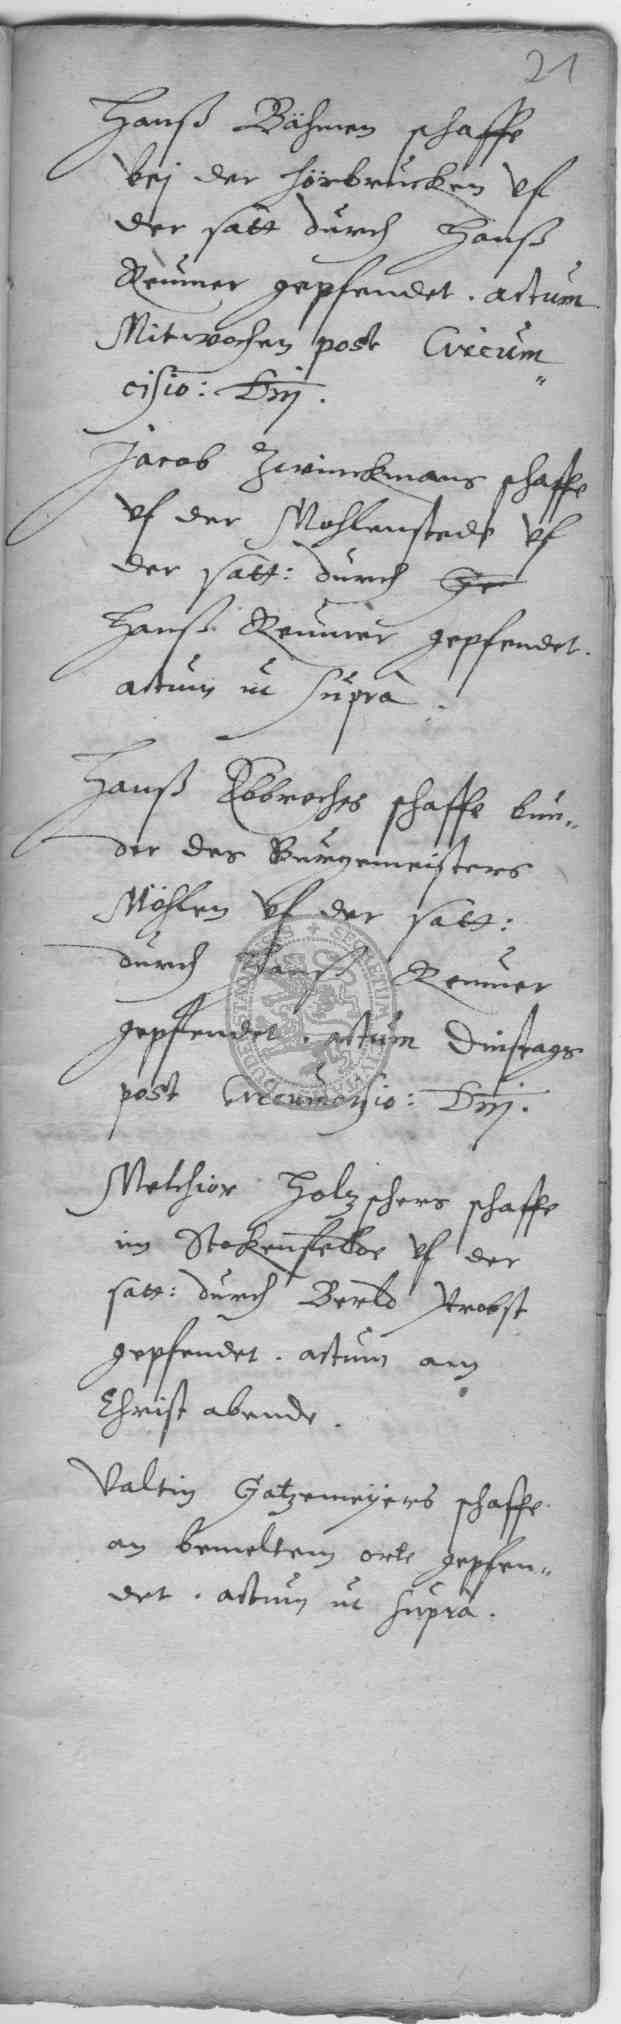 21
Hanß Bähmen schaffe
bej der hörbrucken vf
der satt durch Hanß
Reuner gepfendet. actum
Mitwochen post Circum„
cisio: Dnj.
Jacob Zwinckmans schaffe
vf der Mohlenstede vf
der satt: durch
Hanß Reuner gepfendet.
actum ut supra.
Hanß Ebbrechts schaffe
der des Burgemeisters
Möhlen vf der satt:
durch Hanß Reuner
gepfendet. actum Dinstags
post Circumcisio: Dnj.
Melchior Holzschers schaffe
im Stokenfelde vf der
satt: durch Berld Probst
gepfendet. actum am
Christ abende.
Valtin Gatzemeyers schaffe
an bemeltem orte gepfen„
det. actum ut supra.